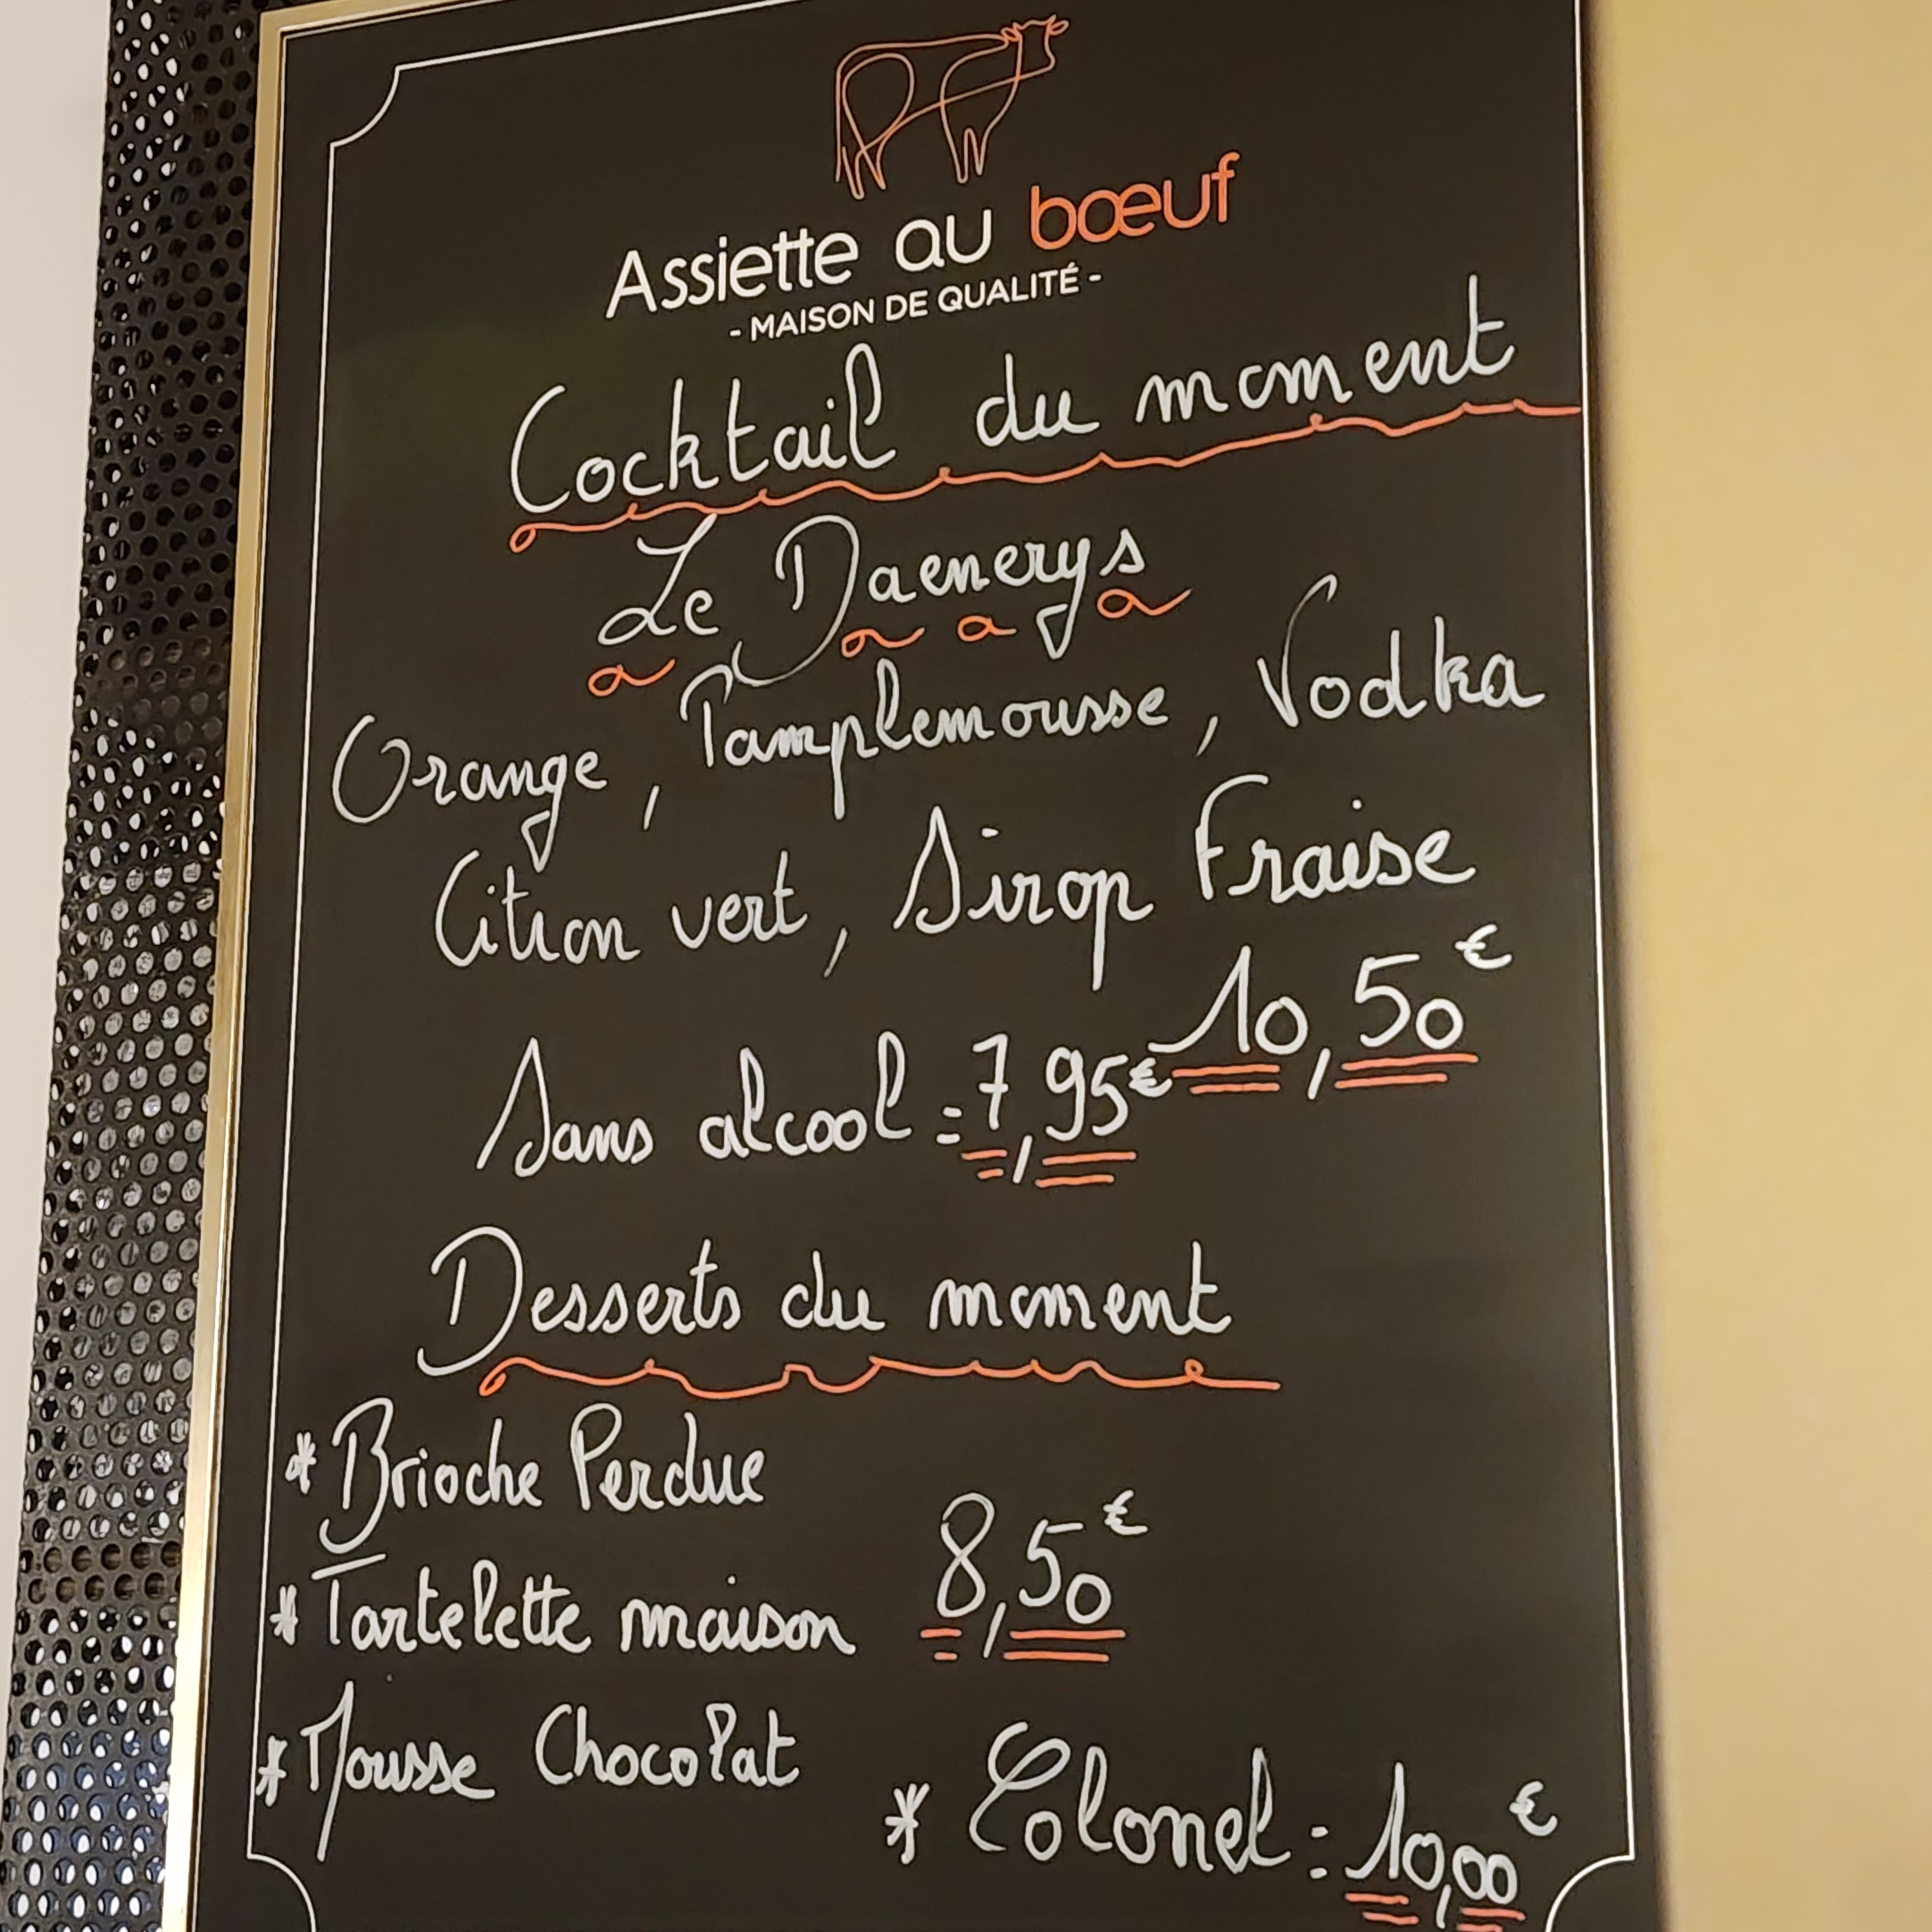 Assiette au bœuf
- MAISON DE QUALITÉ -
Cocktail du moment
Le Daenerys
Orange, Pamplemousse, Vodka
Citron vert, Sirop Fraise
10,50€
Sans alcool = 7,95€
Desserts du moment
* Brioche Perdue
* Tartelette maison 8,50€
* Mousse Chocolat
* Colonel : 10,00€